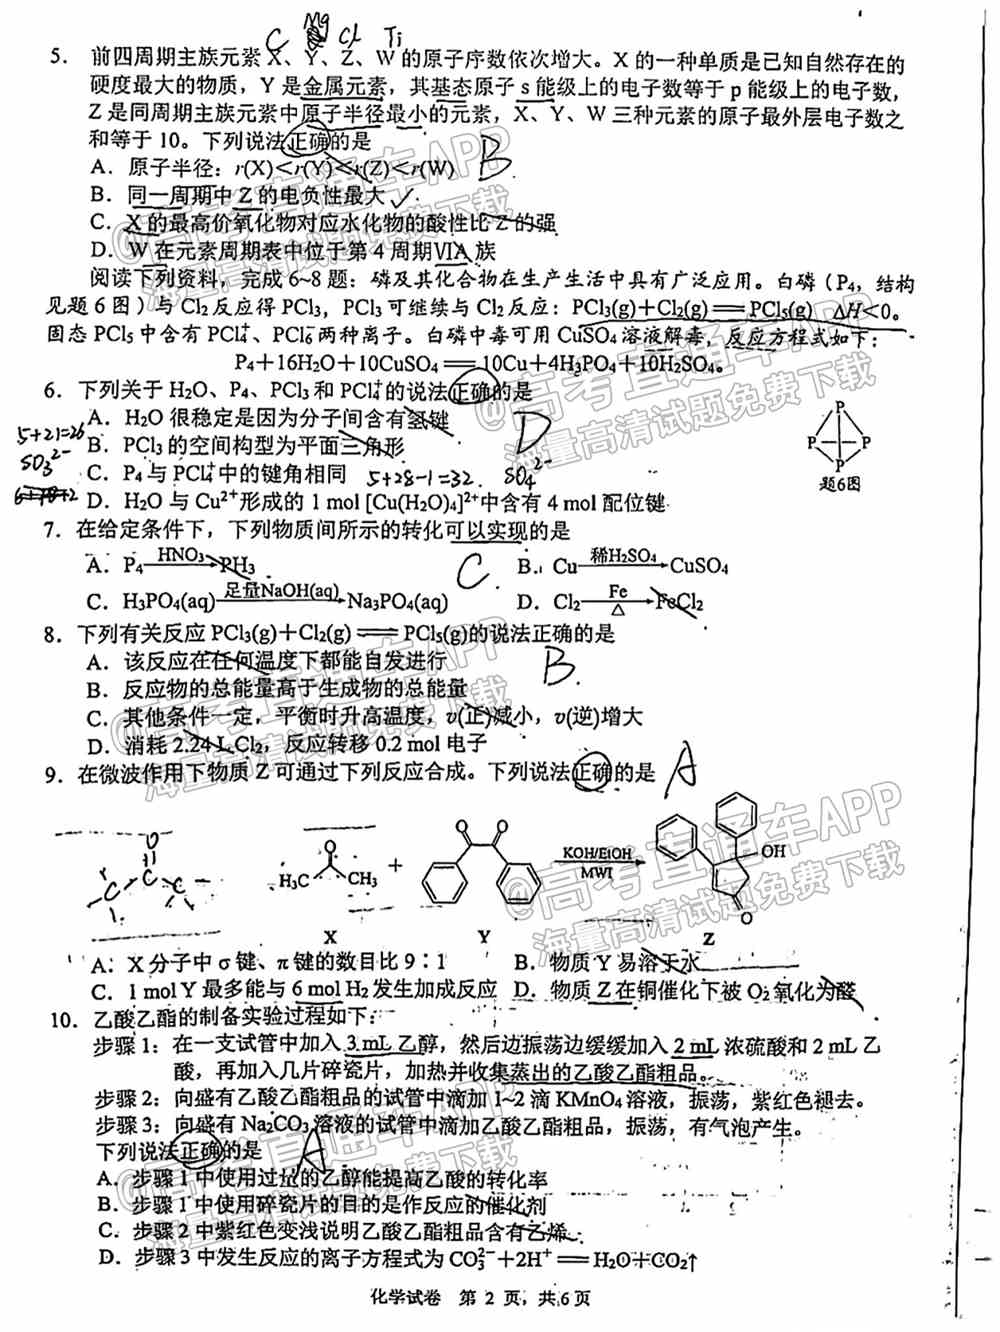 C Mg Cl Ti
5. 前四周期主族元素 X、Y、Z、W 的原子序数依次增大。X 的一种单质是已知自然存在的
硬度最大的物质，Y 是金属元素，其基态原子 s 能级上的电子数等于 p 能级上的电子数，
Z 是同周期主族元素中原子半径最小的元素，X、Y、W 三种元素的原子最外层电子数之
和等于 10。下列说法正确的是
B
A．原子半径：r(X)＜r(Y)＜r(Z)＜r(W)
B．同一周期中 Z 的电负性最大
C．X 的最高价氧化物对应水化物的酸性比 Z 的强
D．W 在元素周期表中位于第 4 周期ⅥA 族
阅读下列资料，完成 6~8 题：磷及其化合物在生产生活中具有广泛应用。白磷（P₄，结构
见题 6 图）与 Cl₂ 反应得 PCl₃，PCl₃ 可继续与 Cl₂ 反应：PCl₃(g)＋Cl₂(g)══PCl₅(g) ΔH＜0。
固态 PCl₅ 中含有 PCl₄⁺、PCl₆⁻ 两种离子。白磷中毒可用 CuSO₄ 溶液解毒，反应方程式如下：
P₄＋16H₂O＋10CuSO₄══10Cu＋4H₃PO₄＋10H₂SO₄。
6. 下列关于 H₂O、P₄、PCl₃ 和 PCl₄⁺ 的说法正确的是
A．H₂O 很稳定是因为分子间含有氢键
5+21=26
D
B．PCl₃ 的空间构型为平面三角形
SO₃²⁻
C．P₄ 与 PCl₄⁺ 中的键角相同 5+28-1=32. SO₄²⁻
D．H₂O 与 Cu²⁺ 形成的 1 mol [Cu(H₂O)₄]²⁺ 中含有 4 mol 配位键
P
P P
P
题6图
7. 在给定条件下，下列物质间所示的转化可以实现的是
A．P₄ —HNO₃→ PH₃ B．Cu —稀H₂SO₄→ CuSO₄
C
C．H₃PO₄(aq) —足量NaOH(aq)→ Na₃PO₄(aq) D．Cl₂ —Fe/△→ FeCl₂
8. 下列有关反应 PCl₃(g)＋Cl₂(g)══PCl₅(g)的说法正确的是
A．该反应在任何温度下都能自发进行
B.
B．反应物的总能量高于生成物的总能量
C．其他条件一定，平衡时升高温度，v(正)减小，v(逆)增大
D．消耗 2.24 L Cl₂，反应转移 0.2 mol 电子
9. 在微波作用下物质 Z 可通过下列反应合成。下列说法正确的是 A
O
H₃C CH₃
＋
O O
KOH/EtOH
MWI
OH
O
X Y Z
A．X 分子中 σ 键、π 键的数目比 9∶1 B．物质 Y 易溶于水
C．1 mol Y 最多能与 6 mol H₂ 发生加成反应 D．物质 Z 在铜催化下被 O₂ 氧化为醛
10. 乙酸乙酯的制备实验过程如下：
步骤 1：在一支试管中加入 3 mL 乙醇，然后边振荡边缓缓加入 2 mL 浓硫酸和 2 mL 乙
酸，再加入几片碎瓷片，加热并收集蒸出的乙酸乙酯粗品。
步骤 2：向盛有乙酸乙酯粗品的试管中滴加 1~2 滴 KMnO₄ 溶液，振荡，紫红色褪去。
步骤 3：向盛有 Na₂CO₃ 溶液的试管中滴加乙酸乙酯粗品，振荡，有气泡产生。
下列说法正确的是 A
A．步骤 1 中使用过量的乙醇能提高乙酸的转化率
B．步骤 1 中使用碎瓷片的目的是作反应的催化剂
C．步骤 2 中紫红色变浅说明乙酸乙酯粗品含有乙烯
D．步骤 3 中发生反应的离子方程式为 CO₃²⁻＋2H⁺══H₂O＋CO₂↑
化学试卷 第 2 页，共 6 页
@高考直通车APP
海量高清试题免费下载
@高考直通车APP
海量高清试题免费下载
@高考直通车APP
海量高清试题免费下载
@高考直通车APP
海量高清试题免费下载
@高考直通车APP
海量高清试题免费下载